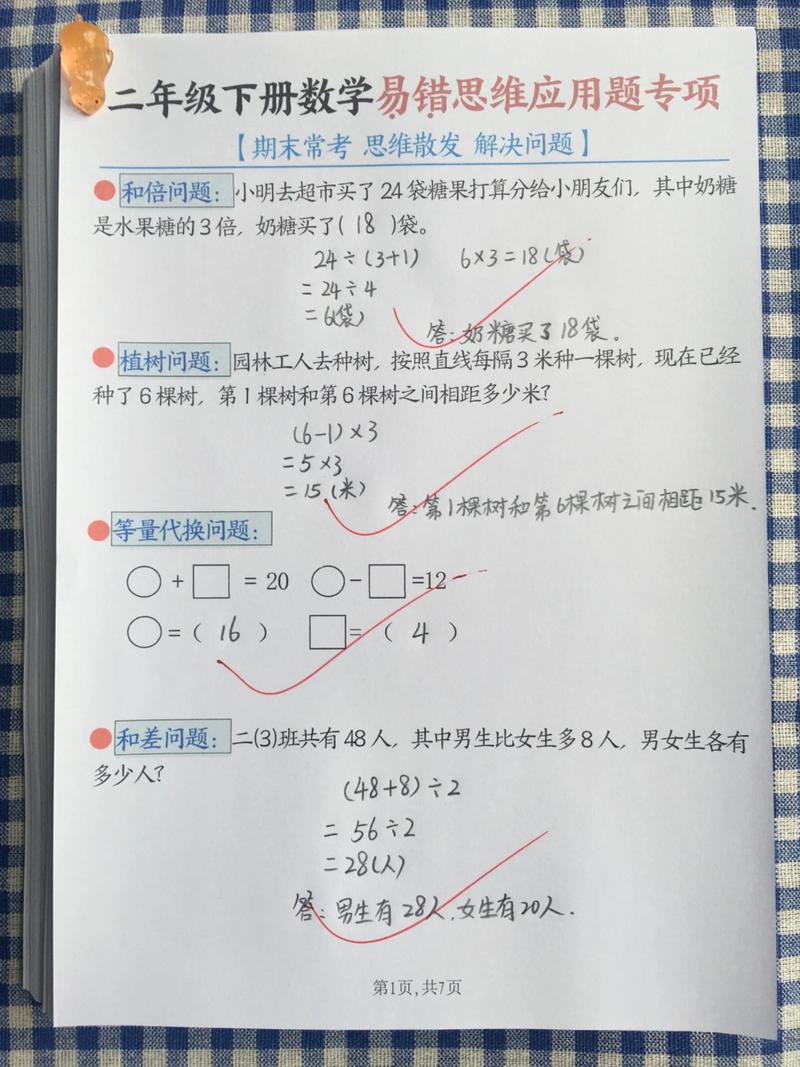 二年级下册数学易错思维应用题专项
【期末常考 思维散发 解决问题】
和倍问题：小明去超市买了24袋糖果打算分给小朋友们，其中奶糖
是水果糖的3倍，奶糖买了( 18 )袋。
24÷(3+1) 6×3=18(袋)
=24÷4
=6(袋)
答：奶糖买了18袋。
植树问题：园林工人去种树，按照直线每隔3米种一棵树，现在已经
种了6棵树，第1棵树和第6棵树之间相距多少米?
(6-1)×3
=5×3
=15(米)
答：第1棵树和第6棵树之间相距15米.
等量代换问题：
○+□=20 ○-□=12
○=( 16 ) □=( 4 )
和差问题：二(3)班共有48人，其中男生比女生多8人，男女生各有
多少人?
(48+8)÷2
=56÷2
=28(人)
答：男生有28人,女生有20人.
第1页,共7页